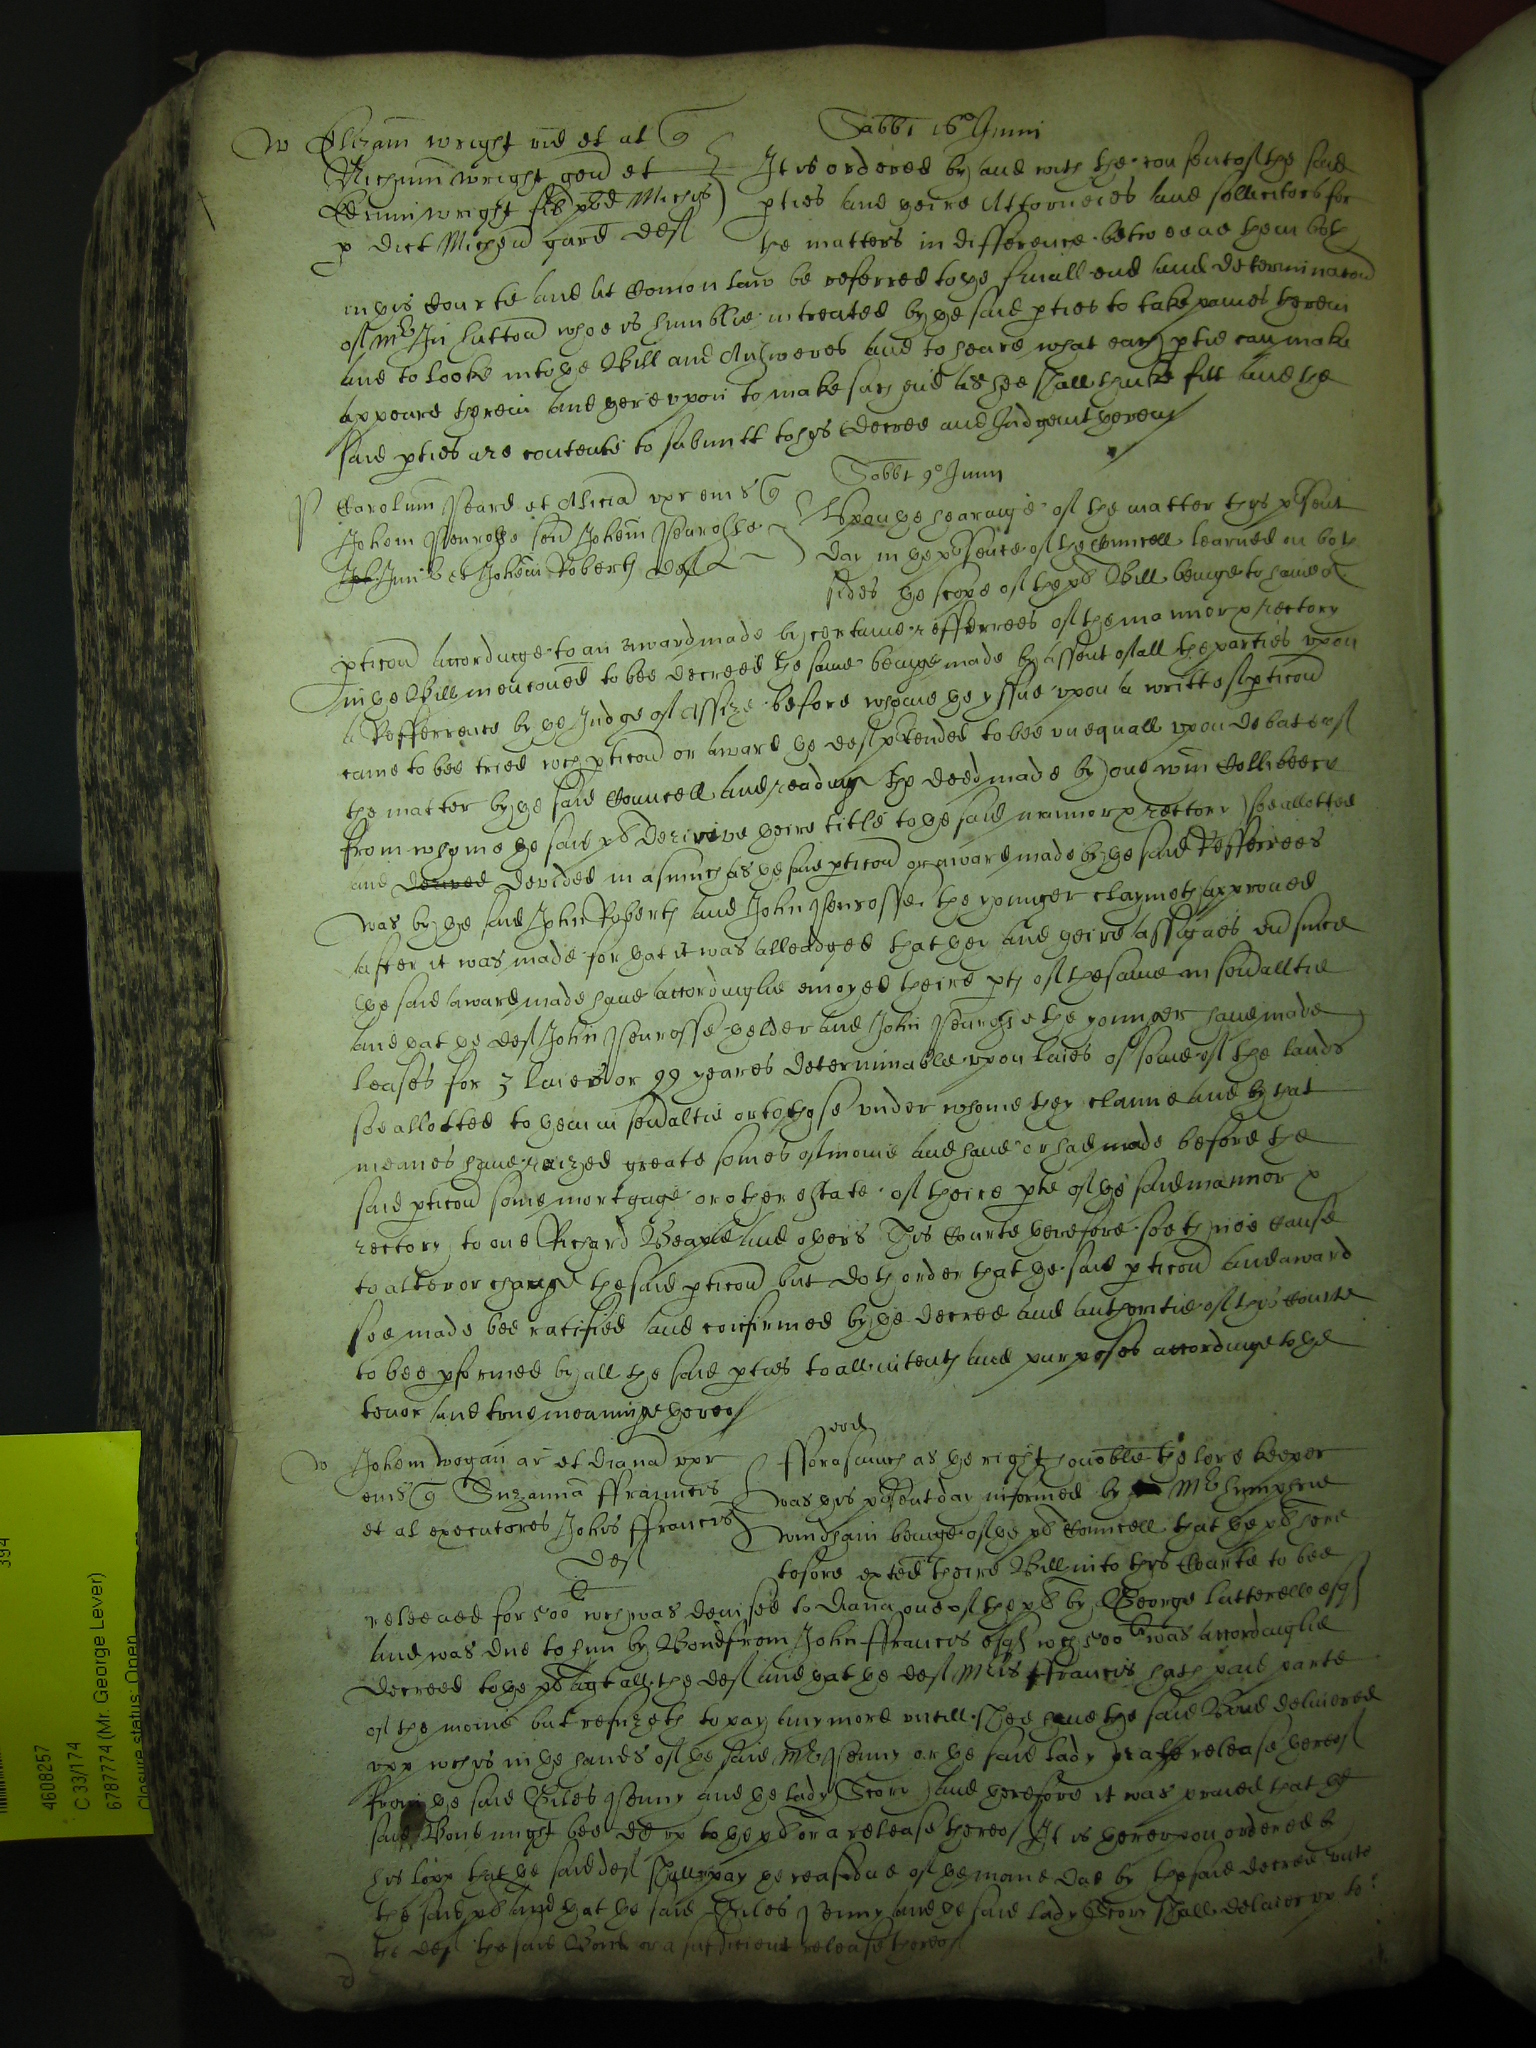 Sabbi 16º Junii
w Elizam wright vid et al q
Nichum wright gen et
Edmu wright fil pd Michis
p dict Michem gard def
It is ordered by and with the consent of the said
pties and theire Attorneies and sollicitors for
the matters in difference betweene them both
in this Courte and at Comon law be referred to the finall end and determinacon
of Mr Jn hutton whoe is humblie intreated by the said pties to take paines therein
and to looke into the Bill and Answeres and to heare what each ptie can make
appeare therein and therevpon to make such end as hee shall thinke fitt and the
said pties are contente to submitt to his decree and Judgemt therein
Sabbi 9º Junii
P Carolum Beard et Aliciam vxr eius q
Johem Penrosse sen Johem Penrosse
Jun et Johem Robertes def
Vpon the hearinge of the matter this psent
day in the psence of the Councell learned on both
sides the scope of the plt Bill beinge to have a
pticon accordinge to an award made by certaine refferrees of the mannor & rectory
in the Bill mencioned to bee decreed the same beinge made by assent of all the parties vpon
a Refferrence by the Judge of Assize before whome the yssue vpon a writt of pticon
came to bee tried wch pticon or award the def ptended to bee vnequall vpon debate of
the matter by the said Councell and readinge the deed made by one Wm Collibeere
from whome the said plt derive theire title to the said mannor & rectory soe allotted
and devided in asmuch as the said pticon or award made by the said Refferrees
was by the said John Robertes and John Penrosse the younger claymeth approued
after it was made for that it was alleadged that they and theire assignes euer since
the said award made haue accordinglie enioyed theire ptes of the same in seueraltie
and that the def John Penrosse thelder and John Penrosse the younger haue made
leases for 3 liues or 99 yeares determinable vpon liues of some of the lands
soe allotted to them in seueraltie or to those vnder whome they clayme and by that
meanes haue raized greate somes of monie and haue or had made before the
said pticon some mortgage or other estate of theire pte of the said mannor &
rectory to one Richard Beaple and others This Courte therefore seeth noe cause
to alter or change the said pticon but doth order that the said pticon and award
soe made bee ratified and confirmed by the decree and authoritie of this Courte
to bee pformed by all the said pties to all intents and purposes accordinge to the
tenor and true meaninge thereof
eod
w Johem wogan ar et Dianam vxr
eius q Suzanna ffrauncis
et al executores Johis ffrancis
def
fforasmuch as the right honoble the lord keeper
was this psent day informed by Mr humphrie
windham beinge of the plt Councell that the plt here
tofore exted theire Bill into this Courte to bee
releeued for 500 wch was deuised to Diana one of the plt by George lutterell esq
and was due to him by Bond from John ffrancis esq wch 500 li was accordinglie
decreed to the plt agt all the def and that the def Mris ffrancis hath paid parte
of the monie but refuzeth to pay any more vntill shee haue the said Bond deliuered
vpp wch is in the hands of the said Mr Penny or the said lady or a release thereof
from the said Giles Penny and the lady and therefore it was praied that the
said Bond might bee dd vp to the plt or a release thereof It is therevpon ordered by
his lopp that the said def shall pay the reasidue of the monie due by the said decree vnto
the said plt and that the said Giles Penny and the said lady shall deliuer vp to
the def the said Bond or a sufficient release thereof
394
4608257
C 33/174
6787774 (Mr. George Lever)
Closure status: Open